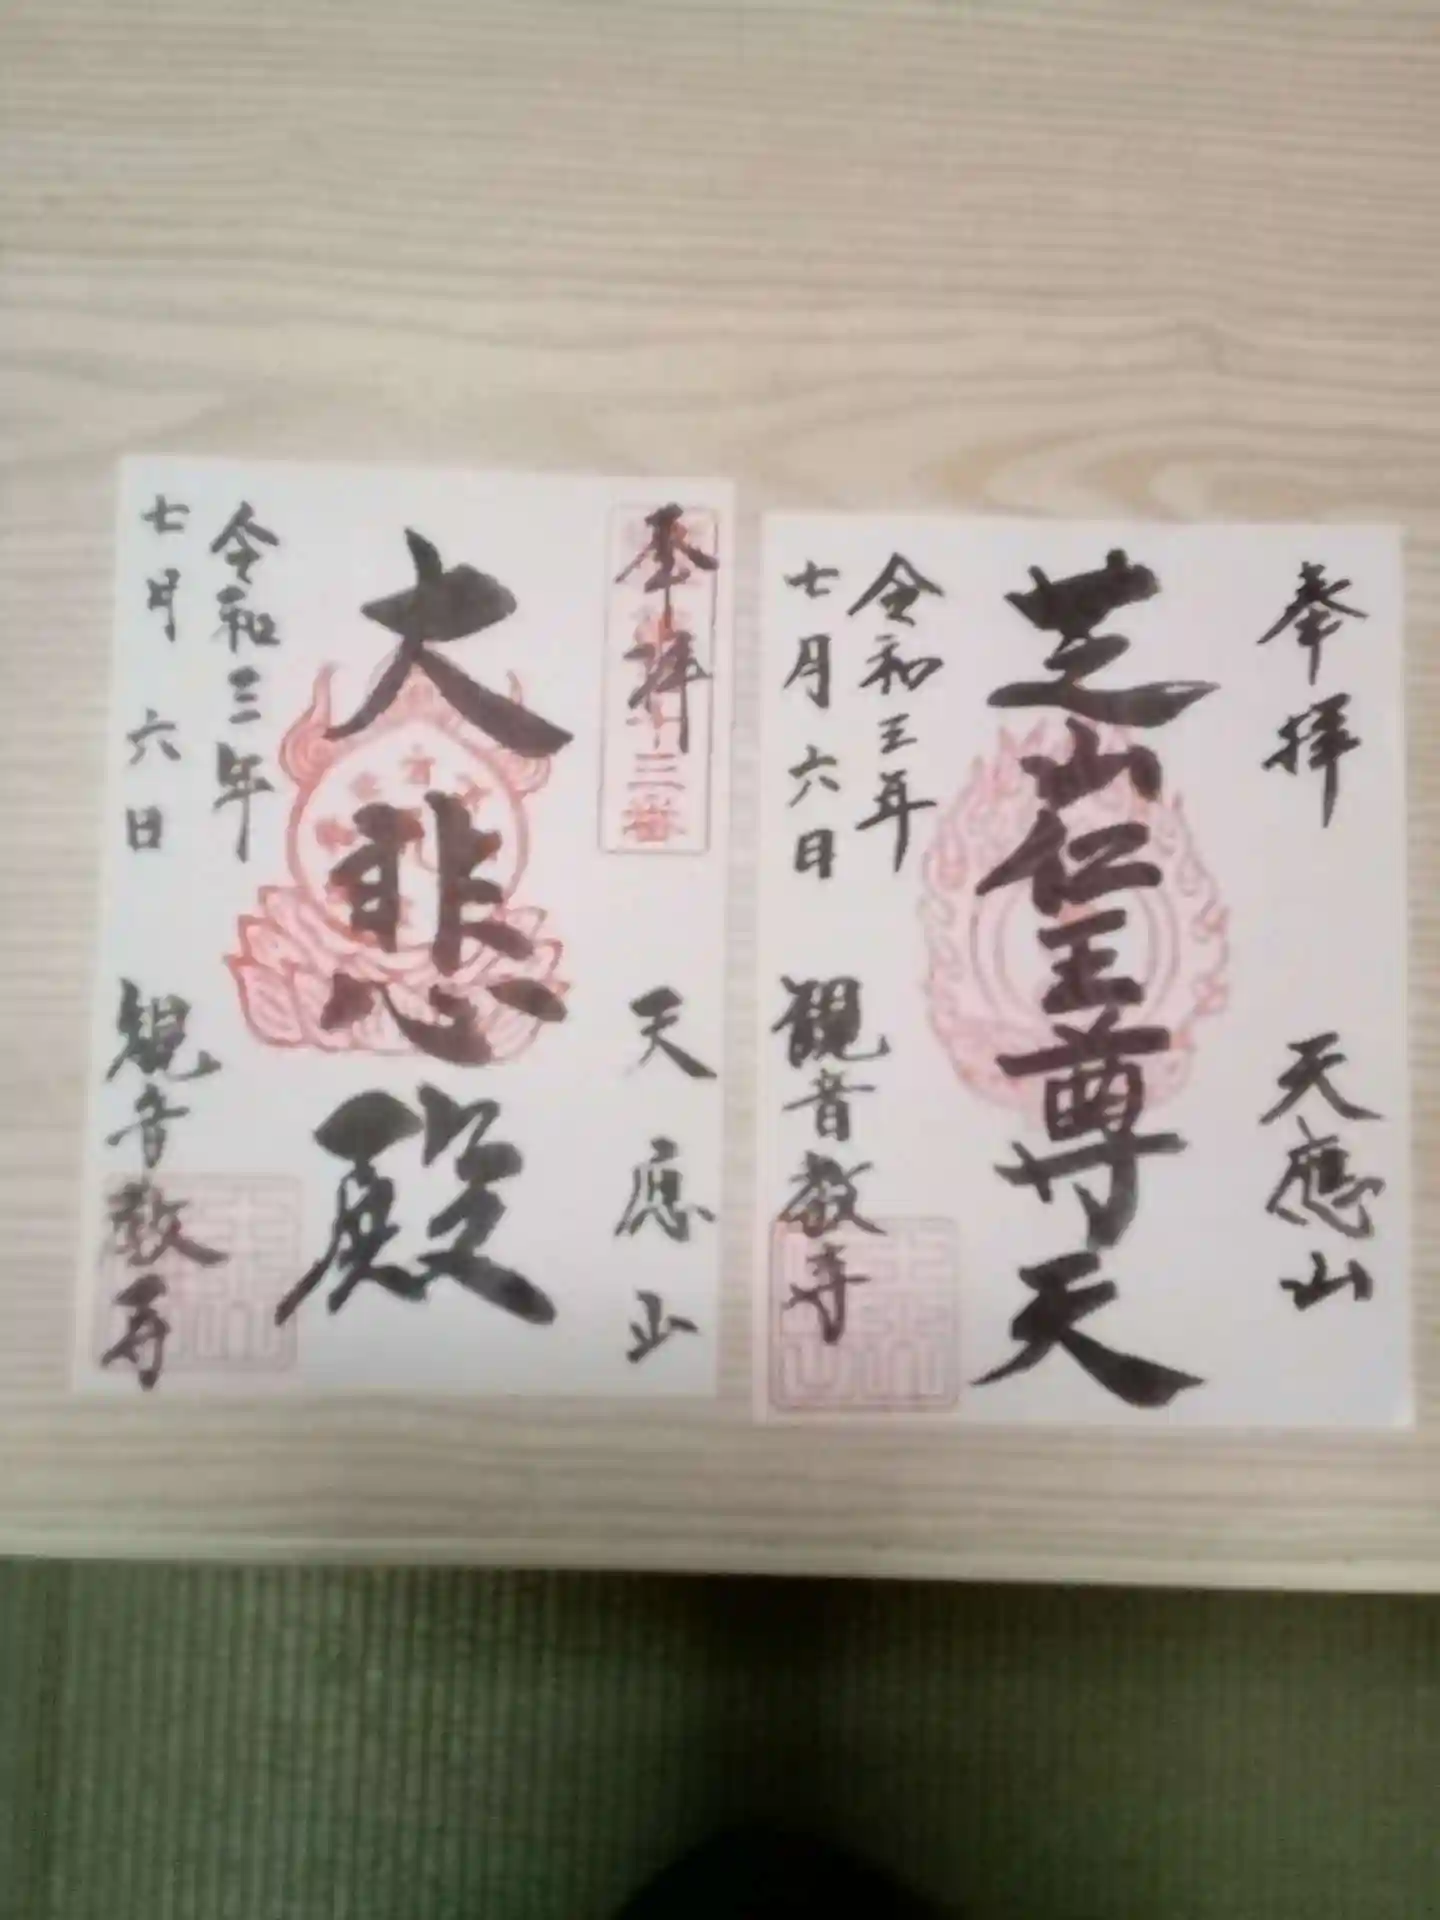 奉拝
天應山
芝山仁王尊天
令和三年
七月六日
観音教寺
奉拝
三番
天應山
大悲殿
令和三年
七月六日
観音教寺